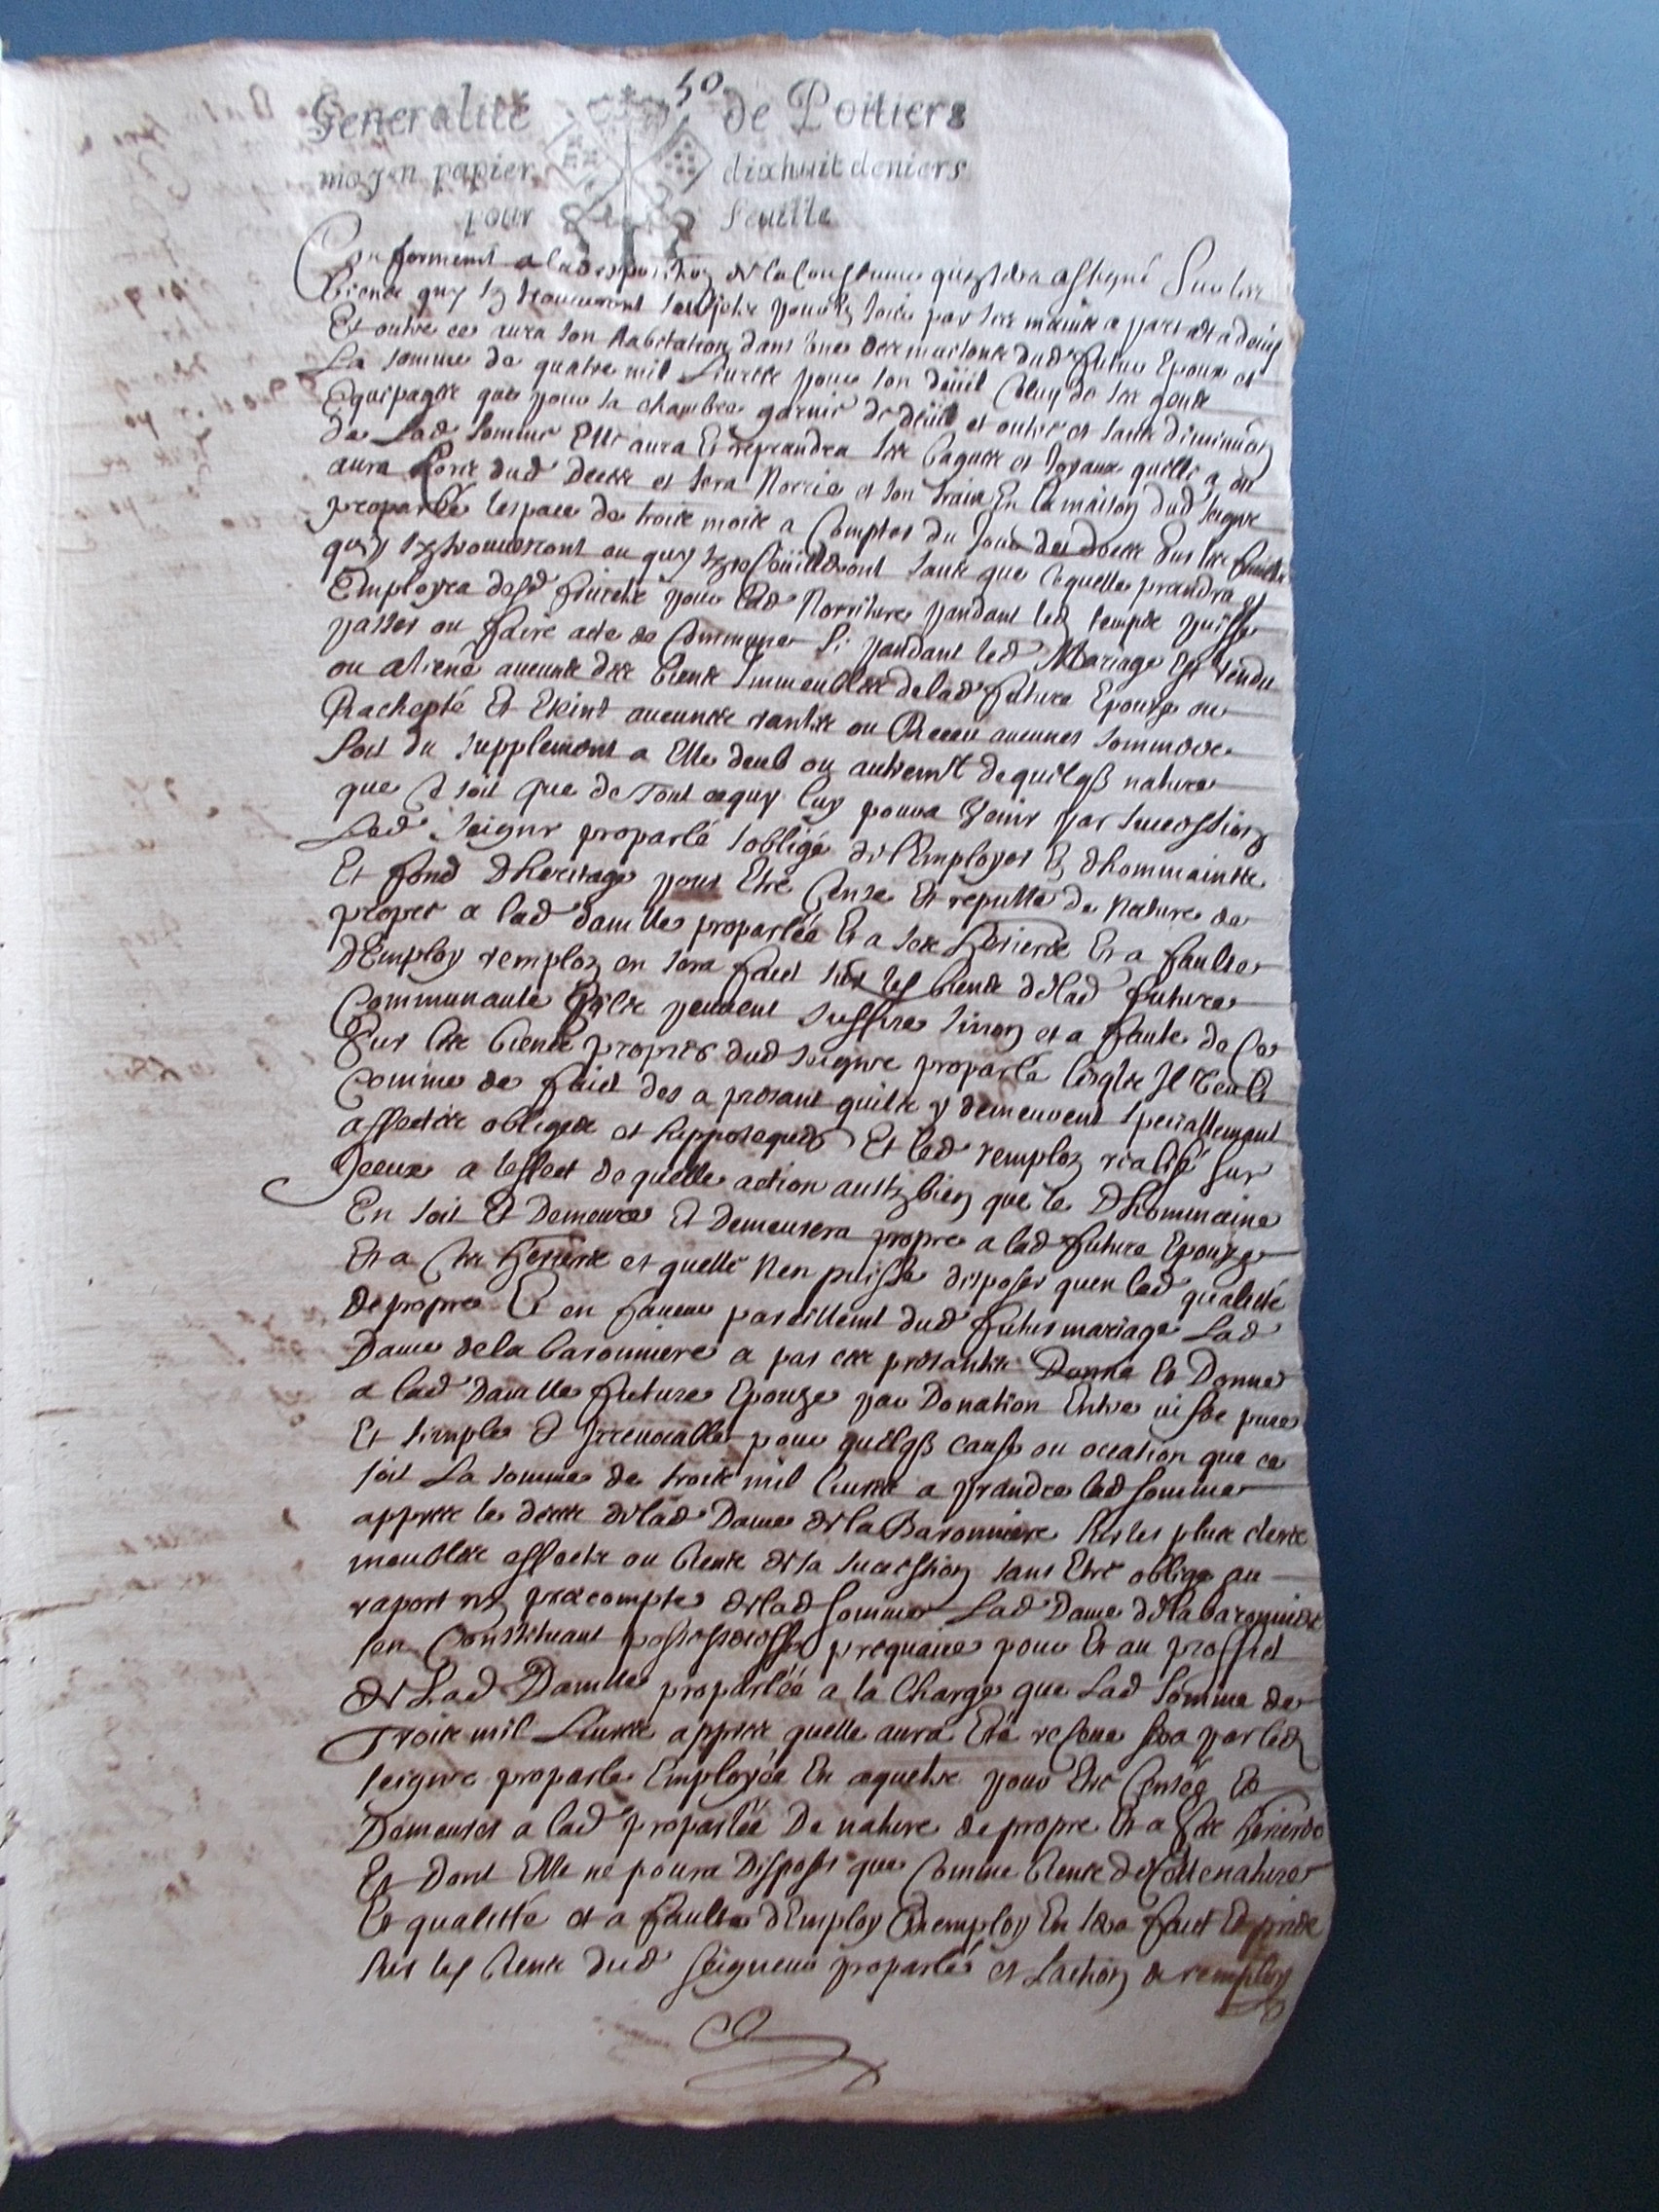 50
Generalité de Poitiers
moyen papier dixhuit deniers
pour feuille
Conformemt a la disposition de la Coustume quy sera assigné Sur les
biens quy sy trouveront pour en Joüir par ses mains a part et a
Et outre ce aura son habitation dans l'une des maisons dud futur Epoux et
La somme de quatre mil Livres pour son deüil Celuy de ses gens
Equipages que pour sa chambre garnie de deüil et outre et sans diminuon
de Lad somme Elle aura Et reprandra ses bagues et Joyaux quelle a ou
aura Lors dud deces et sera Norrie et son train En la maison dud seignr
proparlé lespace de trois mois a Compter du Jour du deces sur les fruits
quy sy trouveront ou quy sy Ceüilleront sans que ce quelle prandra et
Employra desd fruicts pour lad Norriture pandant led temps puisse
passer ou faire acte de Commune Si pandant led Mariage Est vendu
ou aliené aucuns des biens Immeubles de lad future Epouze ou
Rachepté Et Eteint aucunes rantes ou Receu aucunes sommes
soit du supplement a Elle deub ou autremt de quelqs nature
que Ce soit que de Tout ce quy luy poura venir par succession
Led seignr proparlé s'oblige de l'Employer En d'hommaines
Et fond d'heritage pour Etre Cense Et repute de Nature de
propre a lad damlle proparlée Et a ses heriers Et a faulte
d'Employ remploy en sera faict sur les biens de lad future
Communauté sils peuvent suffire sinon et a faute de Ce
Sur les biens propres dud seignr proparlé lesqls Il veult
Comme de faict des a presant quils y demeurent speciallement
affectés obligés et hippotequés Et led remploy realisé sur
Jceux a leffect de quelle action aussy bien que le d'hommaine
En soit Et Demeure Et demeurera propre a lad future Epouze
Et a ses heriers et quelle N'en puisse disposer qu'en lad qualitté
de propre Et en faveur pareillemt dud futur mariage Lad
Dame de la baronniere a par ces presantes Donné Et Donne
a lad damlle future Epouze par Donation Entre vifs pure
Et simple Et Irrevocable pour quelqs cause ou occation que ce
soit La somme de trois mil livres a prandre lad somme
appres le deces de lad Dame de la Baronniere sur les plus clers
meubles effects ou biens de sa succession sans Etre oblige au
raport ny precompte de lad somme Lad Dame de la baronniere
s'en Constituant possesseresse prequaire pour Et au proffict
de Lad Damlle proparlée a la Charge que Lad somme de
Trois mil Livres appres quelle aura Eté reseue sera par led
seignr proparlé Employée En aquets pour Etre Censée Et
Demeurer a lad proparlée De nature de propre Et a ses heriers
Et Dont Elle ne poura Disposer que Comme biens de Cette nature
Et qualitté et a faulte d'Employ Remploy En sera faict Et pris
sur les biens dud seigneur proparlé et Laction de remploy